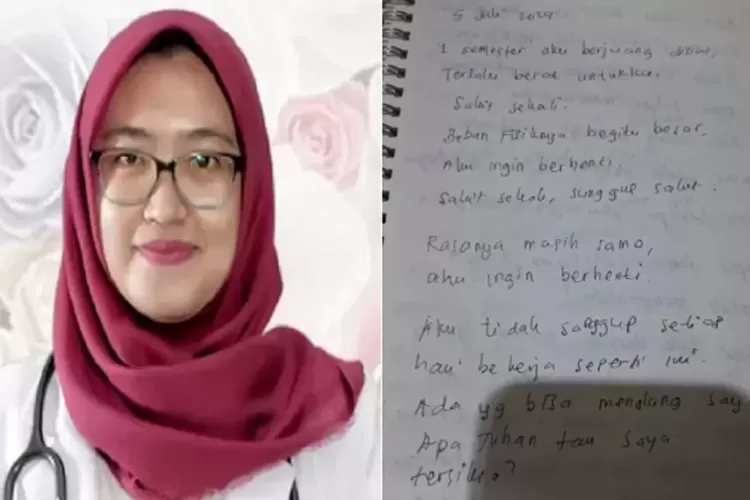 1 semester aku berjuang disini,
Terlalu berat untukku.
Sakit sekali.
Beban Fisiknya begitu besar.
Aku ingin berhenti.
Sakit sekali, sungguh sakit.
Rasanya masih sama,
aku ingin berhenti.
Aku tidak sanggup setiap
hari bekerja seperti ini.
Ada yg bisa menolong saya
Apa Tuhan tau saya
tersiksa?